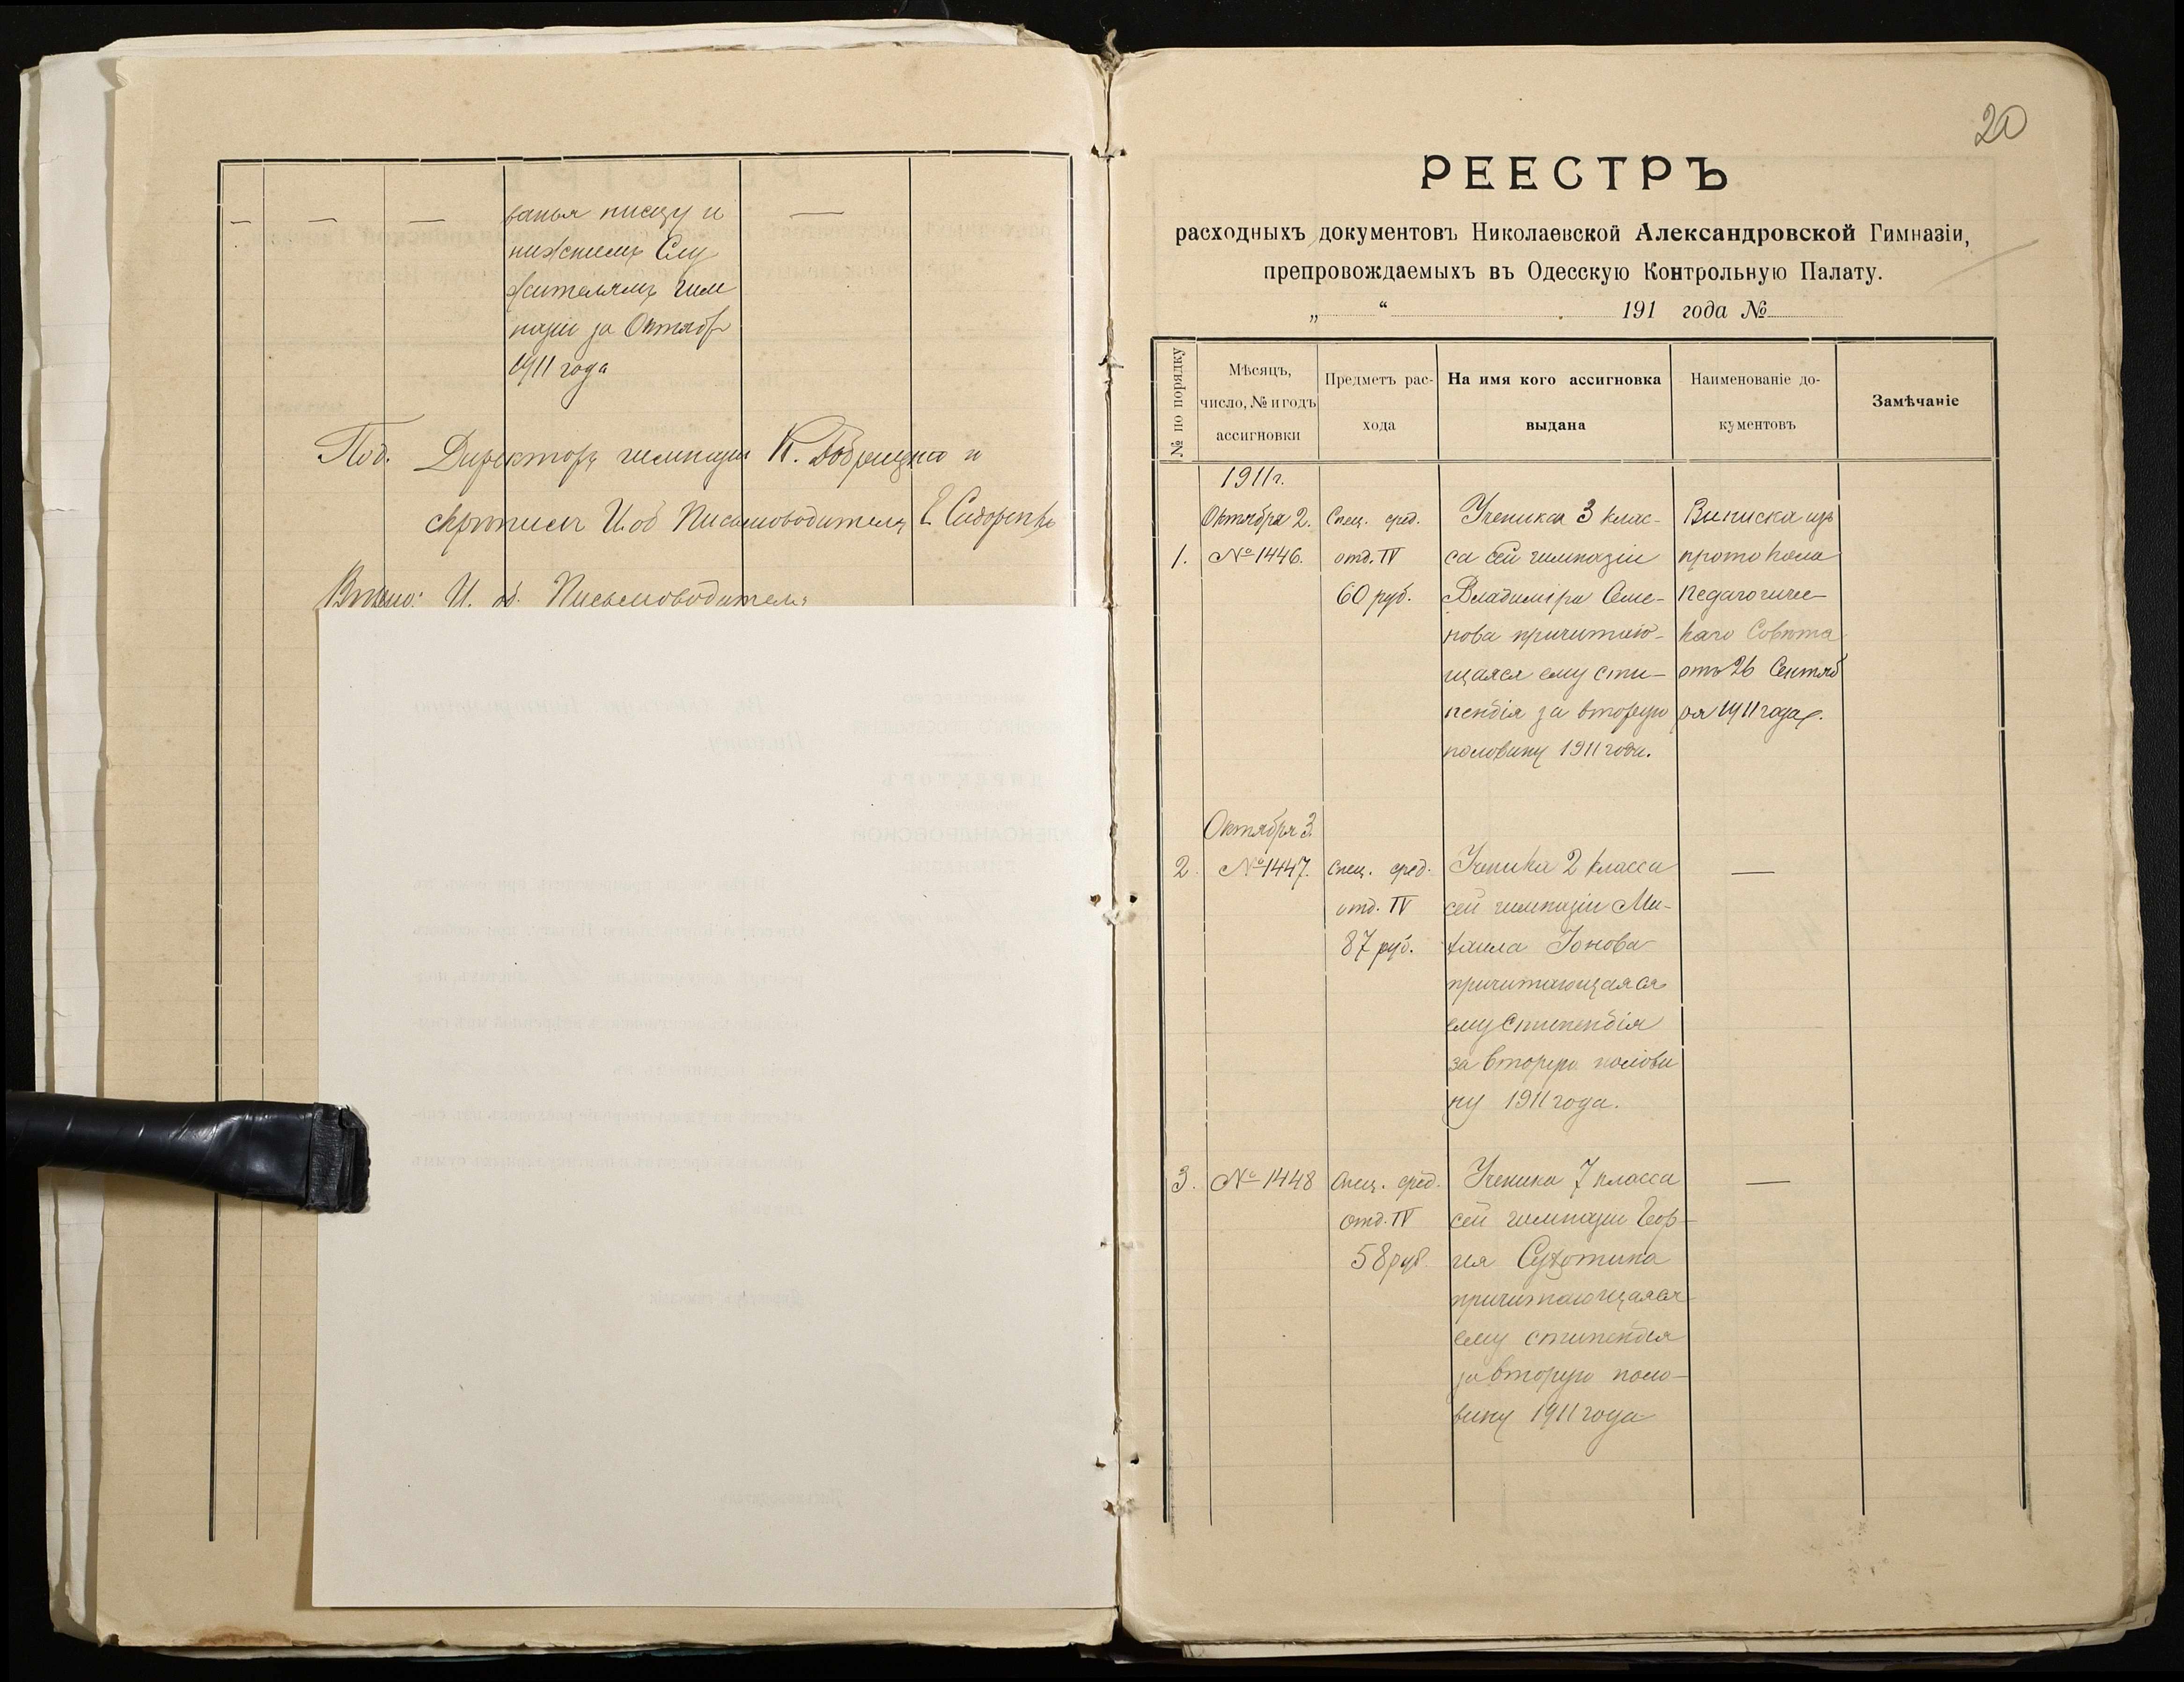 — — — ванья писцу и —
нижнимъ Слу
жителямъ гим
назіи за Октябр
1911 года
Под. Директоръ гимназіи К. и
скрѣпилъ И. об Письмоводителя Е. Сидоренко
Вѣрно: И. об. Письмоводителя
20
РЕЕСТРЪ
расходныхъ документовъ Николаевской Александровской Гимназіи,
препровождаемыхъ въ Одесскую Контрольную Палату.
„ “ 191 года №
№ по порядку
Мѣсяцъ,
число, № и годъ
ассигновки
Предметъ рас-
хода
На имя кого ассигновка
выдана
Наименованіе до-
кументовъ
Замѣчаніе
1911 г.
Октября 2.
1. № 1446.
Спец. сред.
отд. IV
60 руб.
Ученика 3 клас-
са сей гимназіи
Владиміра Семе-
нова причитаю-
щаяся ему сти-
пендія за вторую
половину 1911 года.
Выписка изъ
протокола
Педагогиче-
каго Совѣта
отъ 26 Сентяб
ря 1911 года.
Октября 3.
2. № 1447.
Спец. сред.
отд. IV
87 руб.
Ученика 2 класса
сей гимназіи Ми-
хаила Іонова
причитающаяся
ему стипендія
за вторую полови
ну 1911 года.
—
3. № 1448
Спец. сред.
отд. IV
58 руб.
Ученика 7 класса
сей гимназіи Геор-
гія Сухотина
причитающаяся
ему стипендія
за вторую поло-
вину 1911 года
—